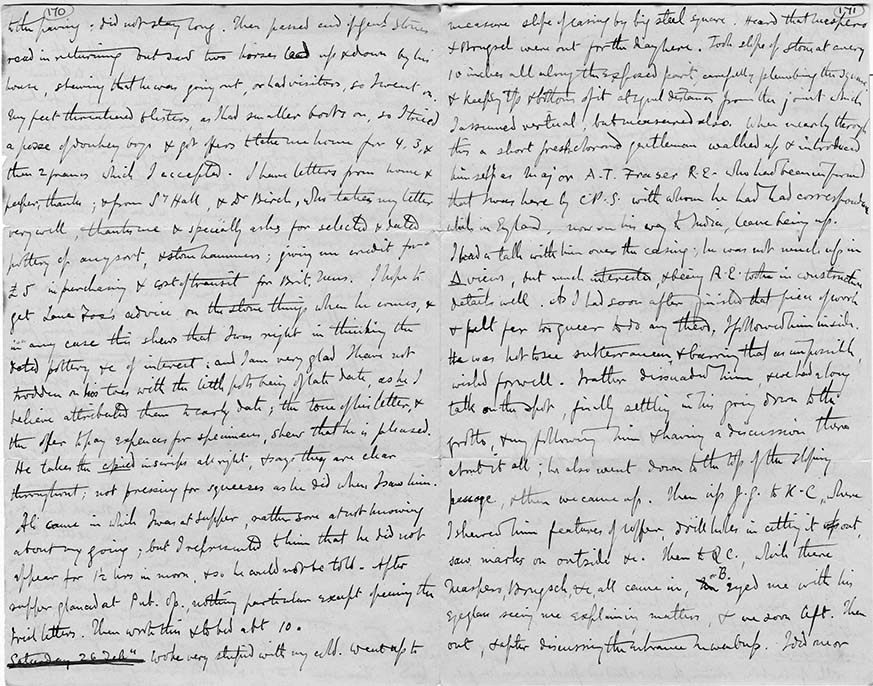 170
to the paving; did not stay long. Then passed and
read in returning but saw two horses led up & down by his
house, shewing that he was going out, or had visitors, so I went on.
My feet threatened blisters, as I had smaller boots on, so I tried
a posse of donkey boys & got offers to take me home for 4, 3, &
then 2 francs which I accepted. I have letters from home &
papers, thanks; & from St Hall, & Dr Birch, who takes my letter
very well, thanks me & specially asks for selected & dated
pottery of any sort, & stone hammers; giving me credit for a
£5 in purchasing & cost of transit for Brit. Mus. I hope to
get Lane Fox's advice on the stone things when he comes, &
in any case this shews that I was right in thinking the
dated pottery &c of interest; and I am very glad I have not
trodden on his toes with the little pots being of late date, as he I
believe attributed them to early date; the tone of his letter, &
the offer to pay expences for specimens, shew that he is pleased.
He takes the copied inscrips all right, & says they are clear
throughout; not pressing for squeezes as he did when I saw him.
Ali came in while I was at supper, rather sore at not knowing
about my going; but I represented to him that he did not
appear for 1½ hrs in morn, & so he could not be told. After
supper glanced at Pub. Op., nothing particular except opening the
letters. Then wrote this & to bed abt 10.
Saturday 26 Feb. woke very stupid with my cold. Went up to
171
measure slope of casing by big steel square. Heard that Maspero
& Brugsch were out for the day here. Took slope of stone at every
10 inches all along the exposed part, carefully plumbing the square
& keeping top & bottom of it at equal distances from the joint which
I assumed vertical, but measured also. When nearly through
this a short fresh coloured gentleman walked up & introduced
himself as Major A.T. Fraser R.E. who had been informed
that I was here by C.P.S. with whom he had had correspondence
while in England, now on his way to India, leave being up.
I had a talk with him over the casing; he was not much up in
Δ views, but much interested, & being R.E. took in construction
details well. As I had soon after finished that piece of work
& felt far too queer to do any more, I followed him inside.
He was hot to see subterranean, & barring that as impossible,
wished for well. I rather dissuaded him, & we had a long
talk on the spot, finally settling in his going down to the
grotto, & my following him & having a discussion there
about it all; he also went down to the top of the sloping
passage, & then we came up. Then up g.g. to K.C, where
I shewed him features of coffer, drill holes in cutting it out,
saw marks on outside &c. Then to Q.C., while there
Maspero, Brugsch, &c, all came in, B. eyed me with his
eyeglass seeing me explaining matters, & we soon left. Then
out, & after discussing the entrance